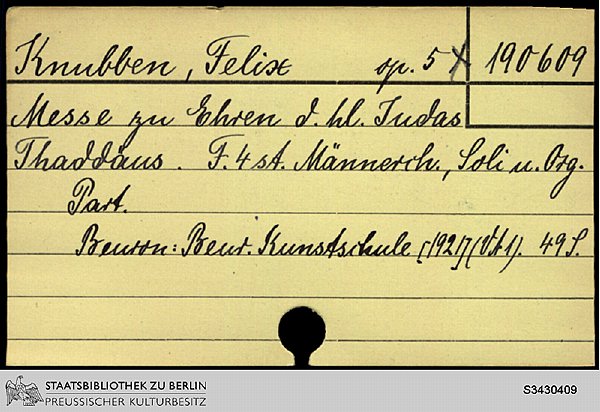 Knubben, Felix op. 5 X 190609
Messe zu Ehren d. hl. Judas
Thaddäus. F. 4 st. Männerch., Soli u. Org.
Part.
Beuron: Beur. Kunstschule (1921) 49 S.
STAATSBIBLIOTHEK ZU BERLIN
PREUSSISCHER KULTURBESITZ
S3430409